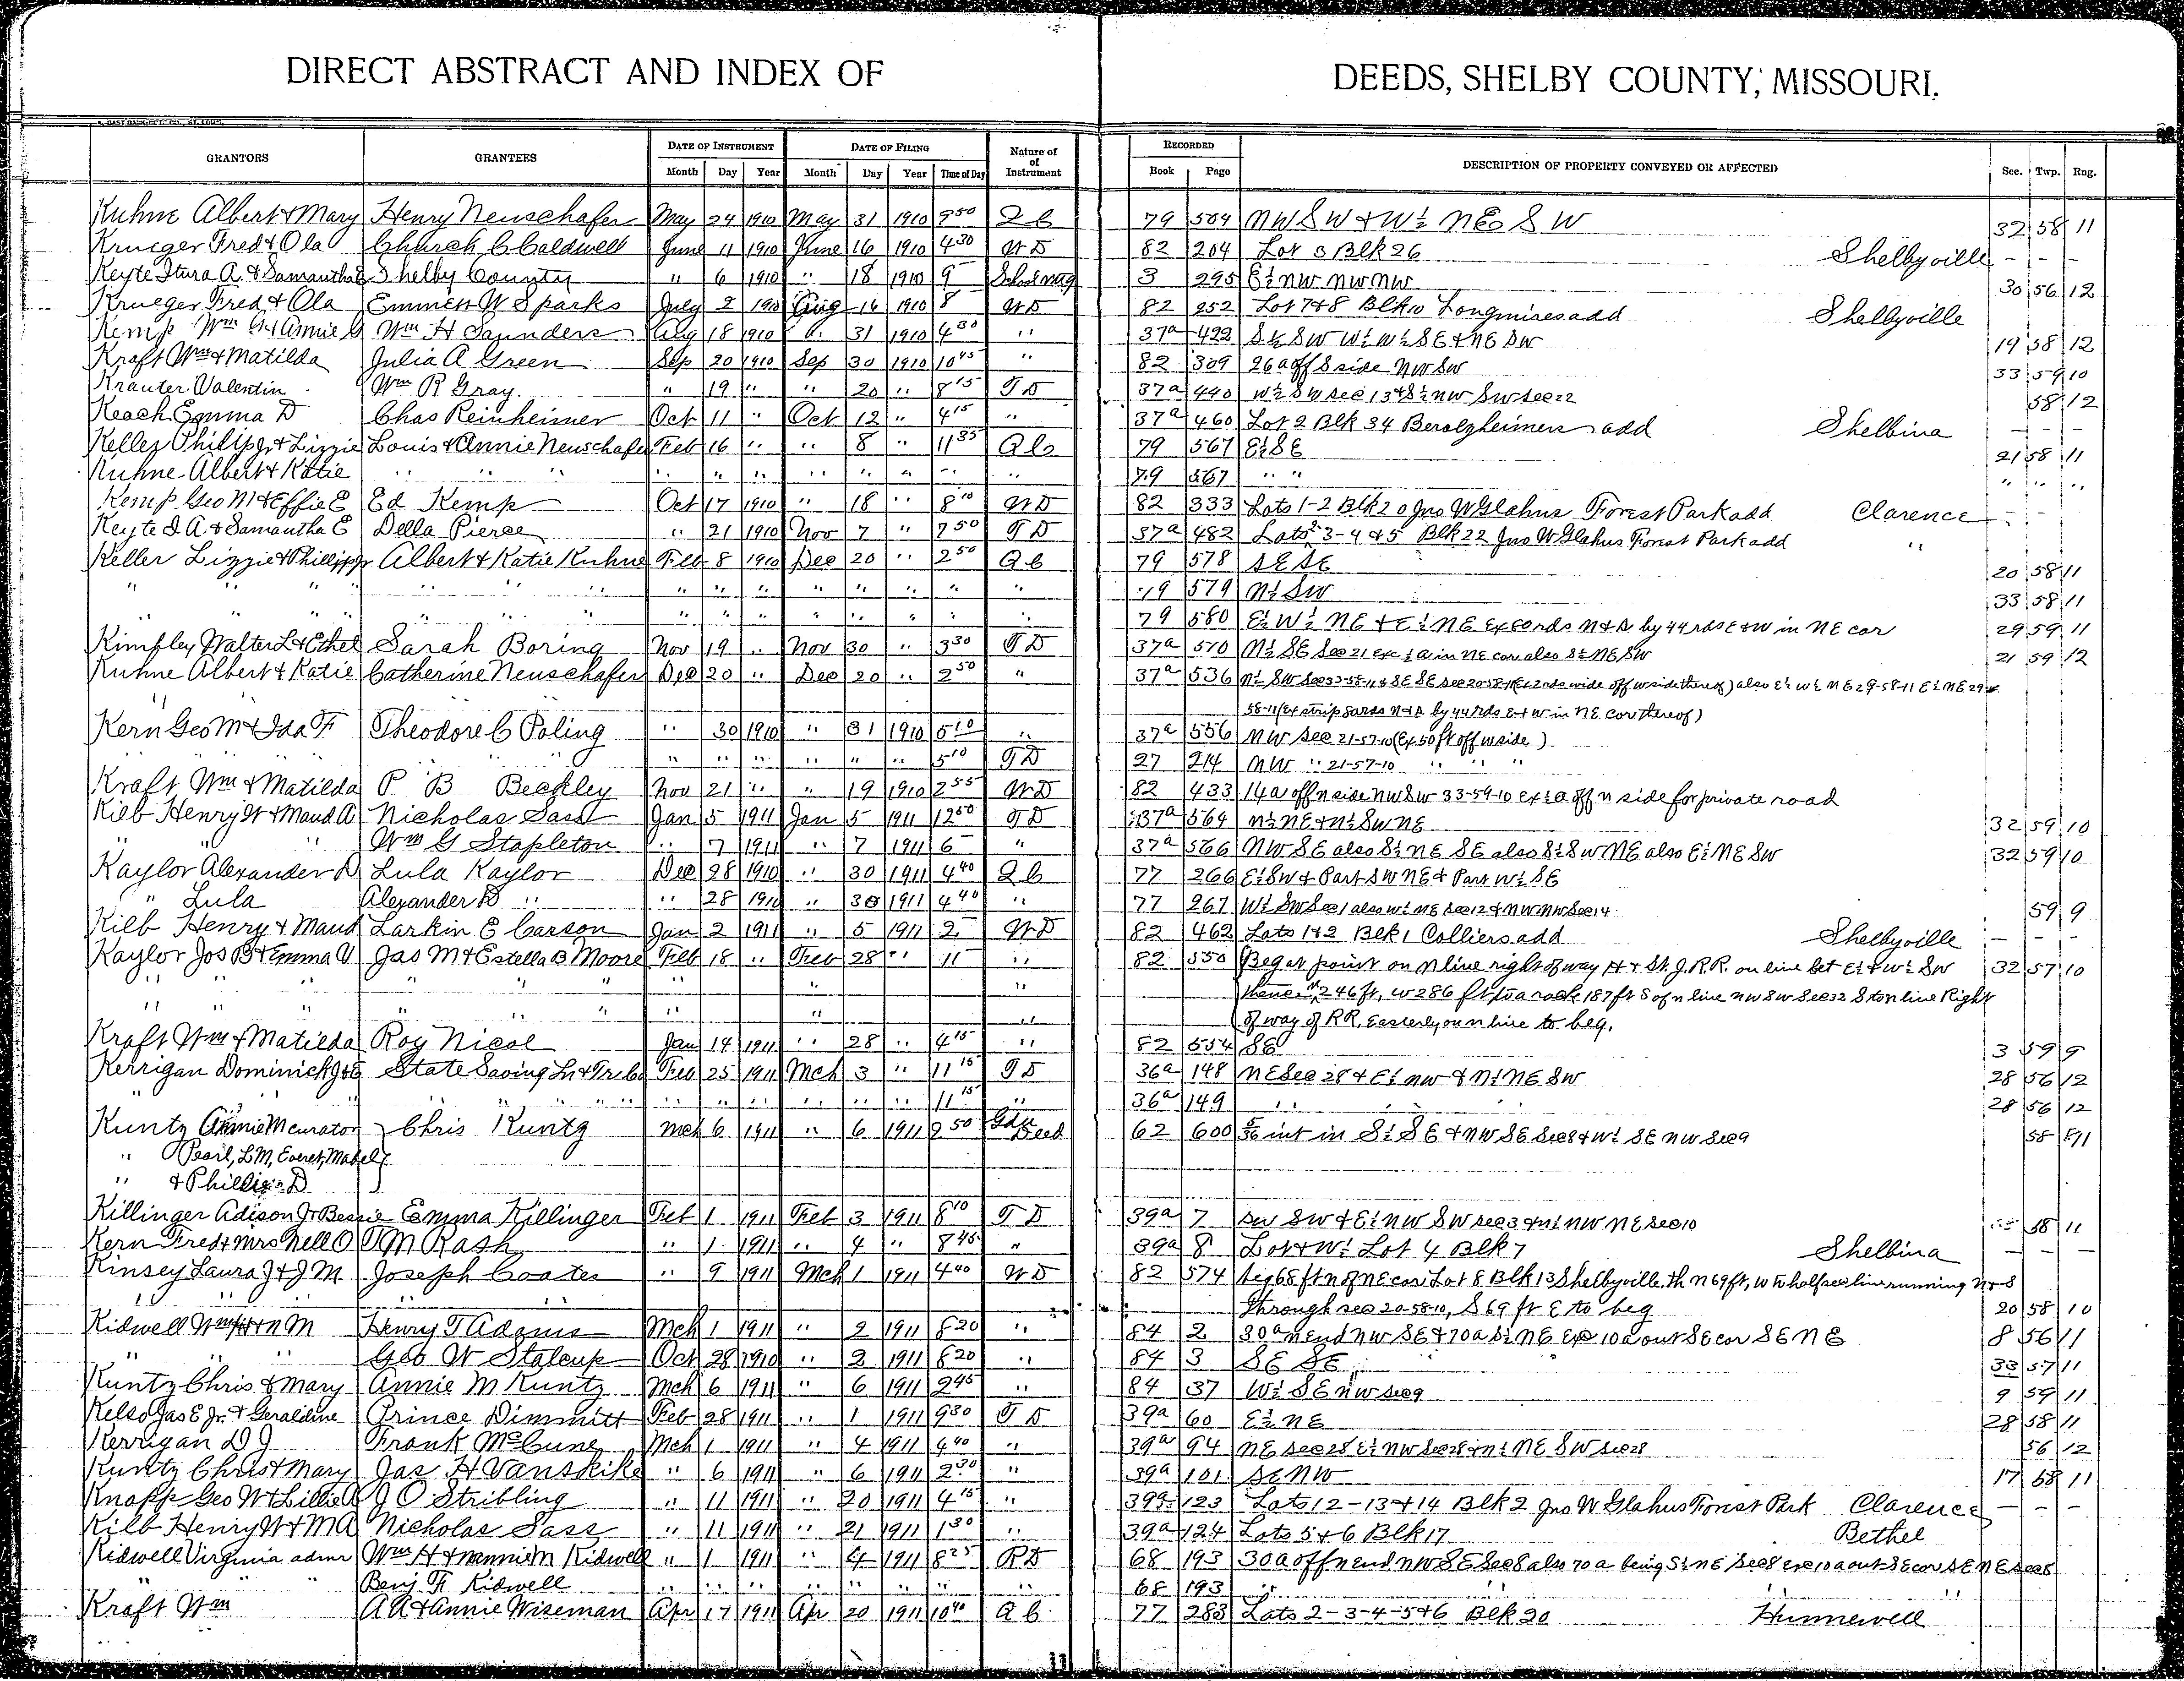 DIRECT ABSTRACT AND INDEX OF DEEDS, SHELBY COUNTY, MISSOURI.
GRANTORS GRANTEES DATE OF INSTRUMENT DATE OF FILING Nature of Instrument RECORDED DESCRIPTION OF PROPERTY CONVEYED OR AFFECTED Sec. Twp. Rng.
Month Day Year Month Day Year Time of Day Book Page
Kuhne Albert & Mary Henry Neuschafer May 24 1910 May 31 1910 9 50 Q C 79 504 NW SW & W½ NE SW 32 58 11
Krueger Fred & Ola Church C Caldwell June 11 1910 June 16 1910 4 30 WD 82 204 Lot 3 Blk 26 Shelbyville - - -
Keyte Itura A. & Samantha E Shelby County " 6 1910 " 18 1910 9 School Mtg 3 295 E½ NW NW NW 30 56 12
Krueger Fred & Ola Emmett W Sparks July 2 1910 Aug 16 1910 8 WD 82 252 Lot 7&8 Blk 10 Longmires add Shelbyville
Kemp Wm G & Annie G Wm H Saunders Aug 18 1910 " 31 1910 4 30 " 37a 422 S½ SW W½ W½ SE & NE SW 19 58 12
Kraft Wm & Matilda Julia A Green Sep 20 1910 Sep 30 1910 10 45 " 82 309 26a off S side NW SW 33 59 10
Krauter Valentin Wm R Gray " 19 " " 20 " 8 15 T D 37a 440 W½ SW Sec 13 & S½ NW SW Sec 22 58 12
Keach Emma D Chas Reinheimer Oct 11 " Oct 12 " 4 15 " 37a 460 Lot 2 Blk 34 Berolzheimers add Shelbina - - -
Keller Phillip Jr & Lizzie Louis & Annie Neuschafer Feb 16 " " 8 " 11 35 Q C 79 567 E½ SE 21 58 11
Kuhne Albert & Katie " " " " " " " " " " " 79 567 " " " " "
Kemp Geo M & Effie E Ed Kemp Oct 17 1910 " 18 " 8 10 WD 82 333 Lots 1-2 Blk 20 Jno W Glahns Forest Park add Clarence - -
Keyte I A & Samantha E Della Pierce " 21 1910 Nov 7 " 7 50 T D 37a 482 Lots 2-3-4&5 Blk 22 Jno W Glahns Forest Park add "
Keller Lizzie & Phillip Jr Albert & Katie Kuhne Feb 8 1910 Dec 20 " 2 50 Q C 79 578 SE SE 20 58 11
" " " " " " " " " " " " " 79 579 N½ SW 33 58 11
" " " " " " " " " " " " " 79 580 E½ W½ NE & E½ NE Ex 60rds N&S by 44 rds E&W in NE cor 29 59 11
Kimpley Walter L & Ethel Sarah Boring Nov 19 " Nov 30 " 3 30 T D 37a 510 N½ SE Sec 21 exc ½ a in NE cor also S½ NE SW 21 59 12
Kuhne Albert & Katie Catherine Neuschafer Dec 20 " Dec 20 " 2 50 " 37a 536 N½ SW Sec 33-58-11 & SE SE Sec 20-58-11 (Ex 2 rds wide off W side thereof) also E½ W½ NE 29-58-11 E½ NE 29-
" 58-11 (Ex strip rds N&S by 44 rds E&W in NE cor thereof)
Kern Geo M & Ida F Theodore C Poling " 30 1910 " 31 1910 5 10 " 37a 556 NW Sec 21-57-10 (Ex 50 ft off W side)
" " " " " 5 10 T D 27 214 NW " 21-57-10 " " "
Kraft Wm & Matilda P B Beckley Nov 21 " " 19 1910 2 55 WD 82 433 14a off N side NW SW 33-59-10 Ex ½ a off N side for private road
Kilb Henry W & Maud A Nicholas Sass Jan 5 1911 Jan 5 1911 1 50 T D 37a 564 N½ NE & N½ SW NE 32 59 10
" " Wm G Stapleton " 7 1911 " 7 1911 6 " 37a 566 NW SE also S½ NE SE also S½ SW NE also E½ NE SW 32 59 10
Kaylor Alexander D Lula Kaylor Dec 28 1910 " 30 1911 4 40 Q C 77 266 E½ SW & Part SW NE & Part W½ SE
" Lula Alexander D " " 28 1910 " 30 1911 4 40 " 77 267 W½ SW Sec 1 also W½ NE Sec 12 & NW NW Sec 14 59 9
Kilb Henry & Maud Larkin E Carson Jan 2 1911 " 5 1911 2 WD 82 462 Lots 1&2 Blk 1 Colliers add Shelbyville - - -
Kaylor Jos B & Emma V Jas M & Estella B Moore Feb 18 " Feb 28 " 11 " 82 550 Beg at point on N line right of way H & St. J. R.R. on line bet E½ & W½ SW 32 57 10
" " " " " " " " thence N 246 ft, W 286 ft to a rock 187 ft S of N line NW SW Sec 32 S to N line Right
" " " " " " " of way of RR, Easterly on N line to beg.
Kraft Wm & Matilda Roy Nicol Jan 14 1911 " 28 " 4 15 " 82 554 SE 3 59 9
Kerrigan Dominick J & G State Saving Ln & Tr. Co Feb 25 1911 Mch 3 " 11 15 T D 36a 148 NE Sec 28 & E½ NW & N½ NE SW 28 56 12
" " " " " " " " " 11 15 " 36a 149 " " 28 56 12
Kuntz Annie M curator Chris Kuntz Mch 6 1911 " 6 1911 2 50 Gdn Deed 62 600 5/36 int in S½ SE & NW SE Sec 8 & W½ SE NW Sec 9 58 11
" Pearl, L M, Everet, Mabel
" & Phillip D
Killinger Adison Jr Bessie Emma Killinger Feb 1 1911 Feb 3 1911 8 10 T D 39a 7 SW SW & E½ NW SW Sec 3 & N½ NW NE Sec 10 58 11
Kern Fred & Mrs Nell O T M Rash " 1 1911 " 4 " 8 45 " 39a 8 Lot & W½ Lot 4 Blk 7 Shelbina - -
Kinsey Laura J & J M Joseph Coates " 9 1911 Mch 1 1911 4 40 WD 82 574 beg 68 ft N of NE cor Lot 8 Blk 13 Shelbyville, th N 69 ft, W to half sec line running N & S
" " through sec 20-58-10, S 69 ft E to beg 20 58 10
Kidwell M Henry T Adams Mch 1 1911 " 2 1911 8 20 " 84 2 30a N end NW SE & 70a S½ NE Exc 10a out SE cor SE NE 8 56 11
" " Geo W Stalcup Oct 28 1910 " 2 1911 8 20 " 84 3 SE SE 33 57 11
Kuntz Chris & Mary Annie M Kuntz Mch 6 1911 " 6 1911 2 45 " 84 37 W½ SE NW Sec 9 9 57 11
Kelso Jas E Jr. & Geraldine Prince Dimmitt Feb 28 1911 " 1 1911 9 30 T D 39a 60 E½ NE 28 58 11
Kerrigan D J Frank McCune Mch 1 1911 " 4 1911 4 40 " 39a 94 NE Sec 28 E½ NW Sec 28 & N½ NE SW Sec 28 56 12
Kuntz Chris & Mary Jas H Vanskike " 6 1911 " 6 1911 2 30 " 39a 101 SE NW 17 58 11
Knapp Geo W & Lillie A J O Stribling " 11 1911 " 20 1911 4 15 " 39a 123 Lots 12-13&14 Blk 2 Jno W Glahns Forest Park Clarence - - -
Kilb Henry W & M A Nicholas Sass " 11 1911 " 21 1911 1 30 " 39a 124 Lots 5&6 Blk 17 Bethel
Kidwell Virginia admr Wm H & Nannie M Kidwell " 1 1911 " 4 1911 8 25 RD 68 193 30a off N end NW SE Sec 8 also 70 a being S½ NE Sec 8 exc 10a out SE cor SE NE Sec 8
" " Benj Fr Kidwell " " " " " " " " 68 193 " " "
Kraft Wm A A & Annie Wiseman Apr 17 1911 Apr 20 1911 10 40 Q C 77 283 Lots 2-3-4-5&6 Blk 20 Hunnewell